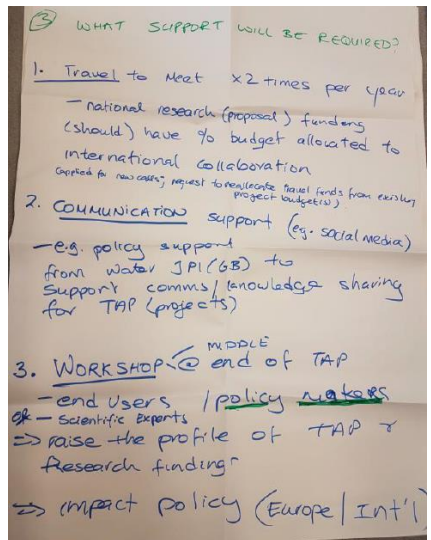 ③ WHAT SUPPORT WILL BE REQUIRED?
1. Travel to Meet ×2 times per year
– national research (proposal) funding
(should) have % budget allocated to
international collaboration
(applied for new calls; request to reallocate travel funds from existing
project budget(s))
2. COMMUNICATION support (eg. social media)
– e.g. policy support
from Water JPI (GB) to
Support comms/knowledge sharing
for TAP (projects)
MIDDLE
3. WORKSHOP @ end of TAP
– end users / policy makers
OR – Scientific Experts
⇒ raise the profile of TAP &
Research findings
⇒ impact policy (Europe / Int'l)